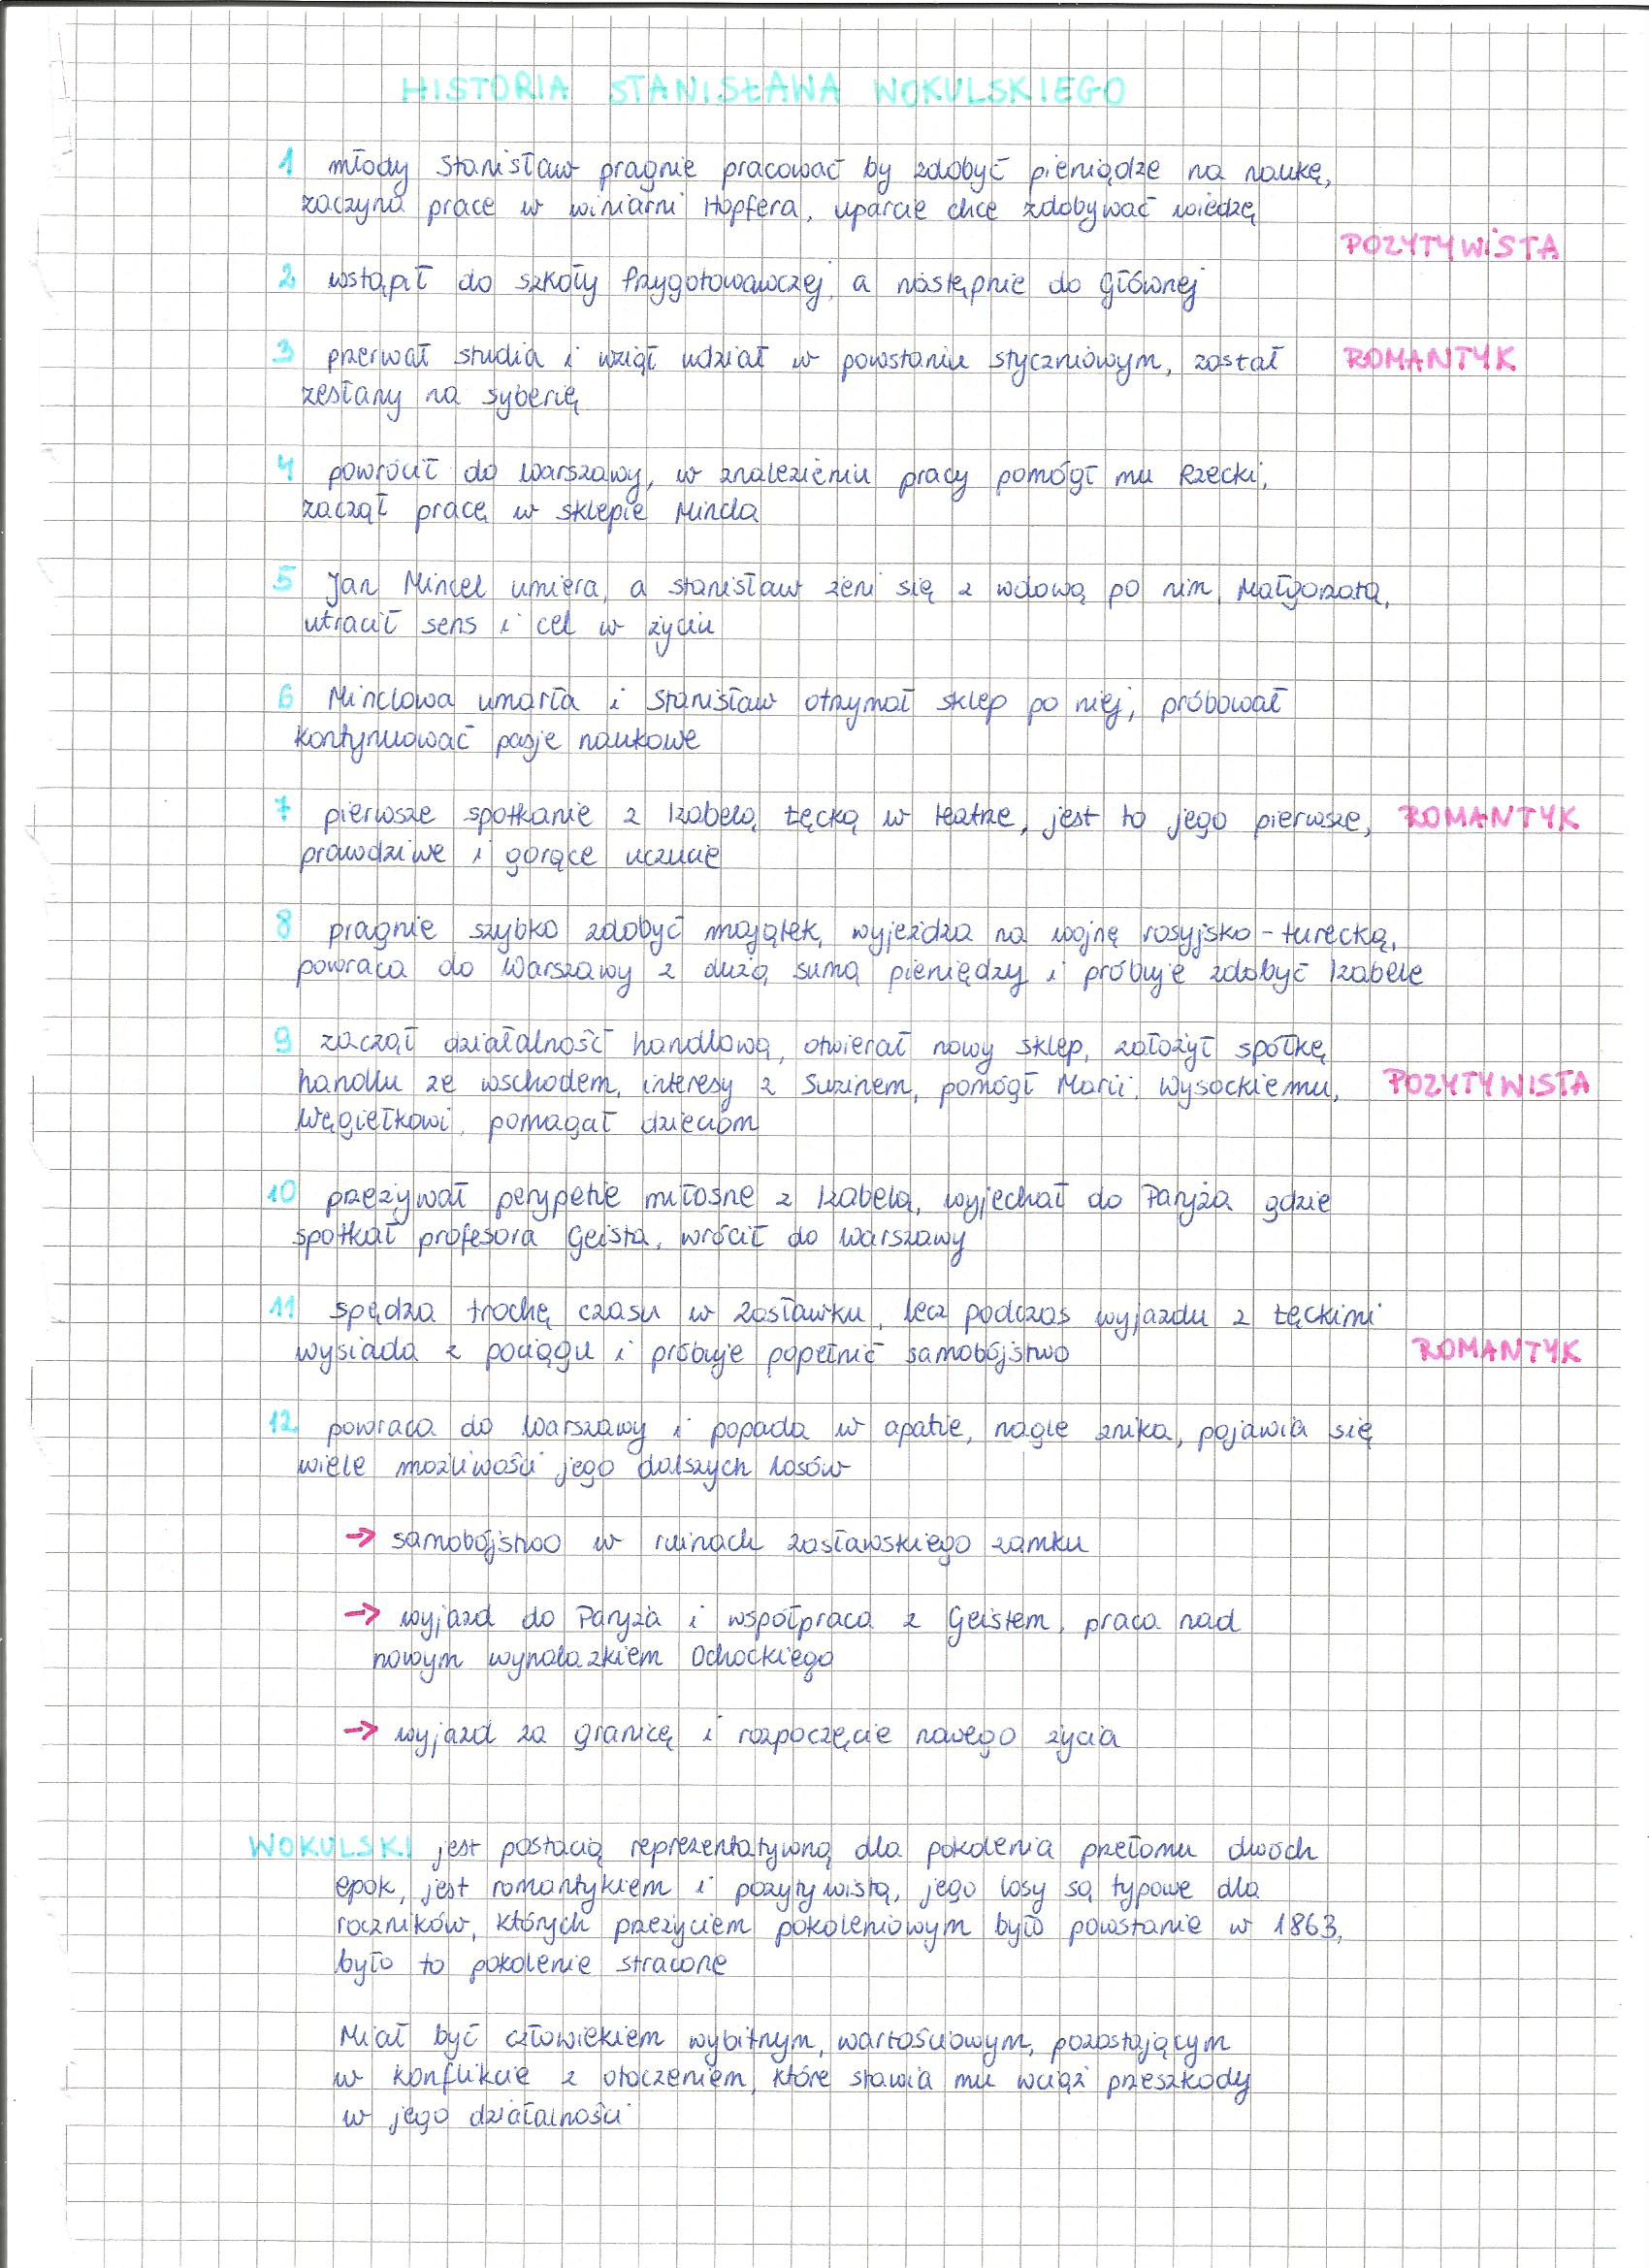 HISTORIA STANISŁAWA WOKULSKIEGO
1 młody Stanisław pragnie pracować by zdobyć pieniądze na naukę,
zaczyna prace w winiarni Hopfera, uparcie chce zdobywać wiedzę
POZYTYWISTA
2 wstąpił do szkoły Przygotowawczej, a następnie do Głównej
3 przerwał studia i wziął udział w powstaniu styczniowym, został ROMANTYK
zesłany na syberię
4 powrócił do Warszawy, w znalezieniu pracy pomógł mu Rzecki,
zaczął pracę w sklepie Mincla
5 Jan Mincel umiera, a Stanisław żeni się z wdową po nim Małgorzatą,
utracił sens i cel w życiu
6 Minclowa umarła i Stanisław otrzymał sklep po niej, próbował
kontynuować pasje naukowe
7 pierwsze spotkanie z Izabelą Łęcką w teatrze, jest to jego pierwsze, ROMANTYK
prawdziwe i gorące uczucie
8 pragnie szybko zdobyć majątek, wyjeżdza na wojnę rosyjsko-turecką,
powraca do Warszawy z dużą sumą pieniędzy i próbuje zdobyć Izabele
9 zaczął działalność handlową, otwierał nowy sklep, założył spółkę
handlu ze wschodem, interesy z Suzinem, pomógł Marii, Wysockiemu, POZYTYWISTA
Węgiełkowi, pomagał dzieciom
10 przeżywał perypetie miłosne z Izabelą, wyjechał do Paryża gdzie
spotkał profesora Geista, wrócił do Warszawy
11 spędza trochę czasu w Zasławku, lecz podczas wyjazdu z Łęckimi
wysiada z pociągu i próbuje popełnić samobójstwo ROMANTYK
12. powraca do Warszawy i popada w apatie, nagle znika, pojawia się
wiele możliwości jego dalszych losów
→ samobójstwo w ruinach zasławskiego zamku
→ wyjazd do Paryża i współpraca z Geistem, praca nad
nowym wynalazkiem Ochockiego
→ wyjazd za granicę i rozpoczęcie nowego życia
WOKULSKI jest postacią reprezentatywną dla pokolenia przełomu dwóch
epok, jest romantykiem i pozytywistą, jego losy są typowe dla
roczników, których przeżyciem pokoleniowym było powstanie w 1863,
było to pokolenie stracone
Miał być człowiekiem wybitnym, wartościowym, pozostającym
w konflikcie z otoczeniem, które stawia mu wciąż przeszkody
w jego działalności